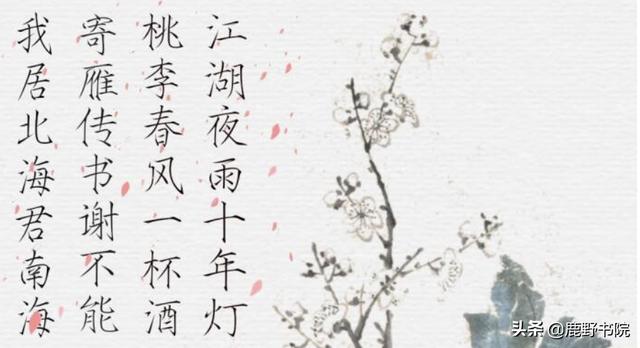 我居北海君南海
寄雁传书谢不能
桃李春风一杯酒
江湖夜雨十年灯
头条 @鹿野书院